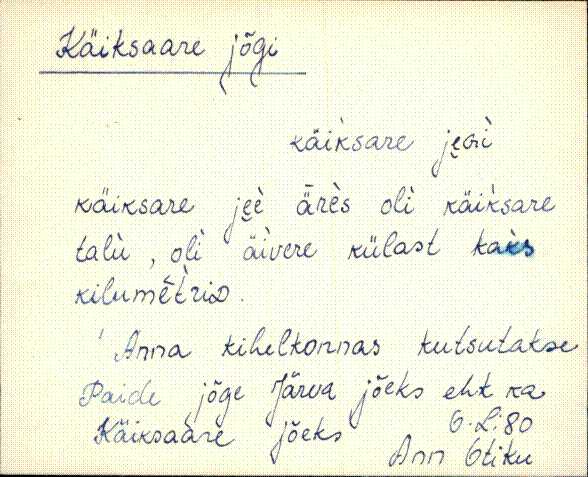 Käiksaare jõgi
käìksare je̮gì
käiksare je̮è ärès olì käìksare
talù, olì äìvere külast kaks
kilumếtrid.
Anna kihelkonnas kutsutakse
Paide jõge Järva jõeks eht ka
Käiksaare jõeks
Ann Otiku